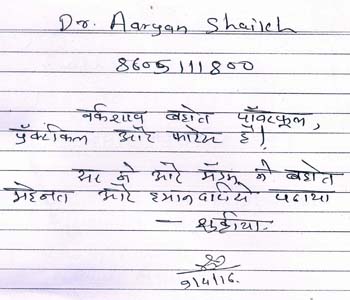 Dr. Aaryan Shaikh
8605111800
वर्कशाप बहोत पॉवरफूल,
प्रॅक्टीकल और है!
सर ने और मॅडम ने बहोत
मेहनत और पढाया
— शुक्रीया.
9/4/16.